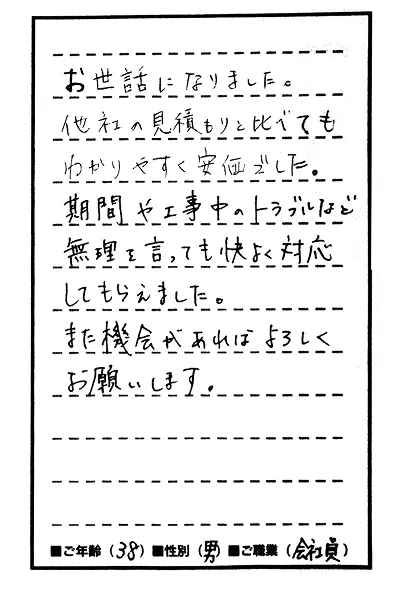 お世話になりました。
他社の見積もりと比べても
わかりやすく安価でした。
期間や工事中のトラブルなど
無理を言っても快よく対応
してもらえました。
また機会があればよろしく
お願いします。
■ご年齢（38）■性別（男）■ご職業（会社員）